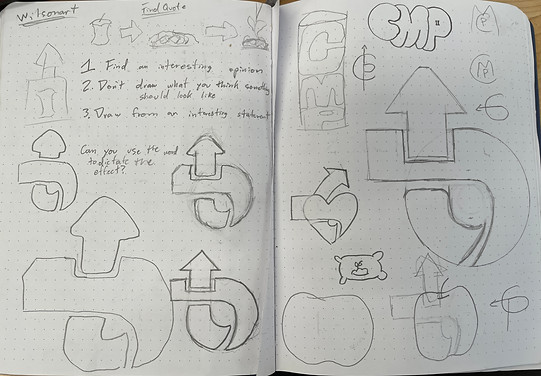 Wilsonart
Find Quote
1. Find an interesting opinion
2. Don't draw what you think something
should look like
3. Draw from an interesting statement
Can you use the word
to dictate the
effect?
CMP
CMP